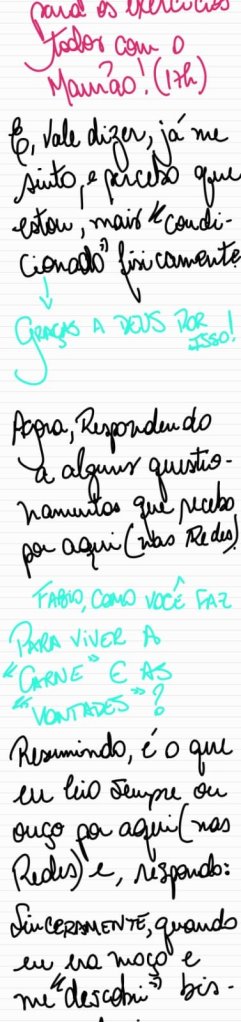 para os exercícios
todos com o
Mamão! (17h)
E, vale dizer, já me
sinto, e percebo que
estou, mais "condi-
cionado" fisicamente
GRAÇAS A DEUS POR
ISSO!
Agora, Respondendo
a alguns questio-
namentos que recebo
por aqui (nas Redes)
FABIO, COMO VOCÊ FAZ
PARA VIVER A
"CARNE" E AS
"VONTADES"?
Resumindo, é o que
eu leio sempre ou
ouço por aqui (nas
Redes) e, respondo:
SINCERAMENTE, quando
eu era moço e
me "descobri" bis-